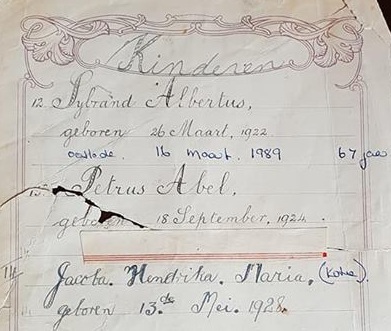 Kinderen
12. Sybrand Albertus,
geboren 26 Maart, 1922
oorlede. 16 Maart 1989 67 jaar
13. Petrus Abel.
geboren 18 September, 1924.
Jacoba. Hendrika. Maria, (Kotie)
geboren 13.de Mei. 1928.